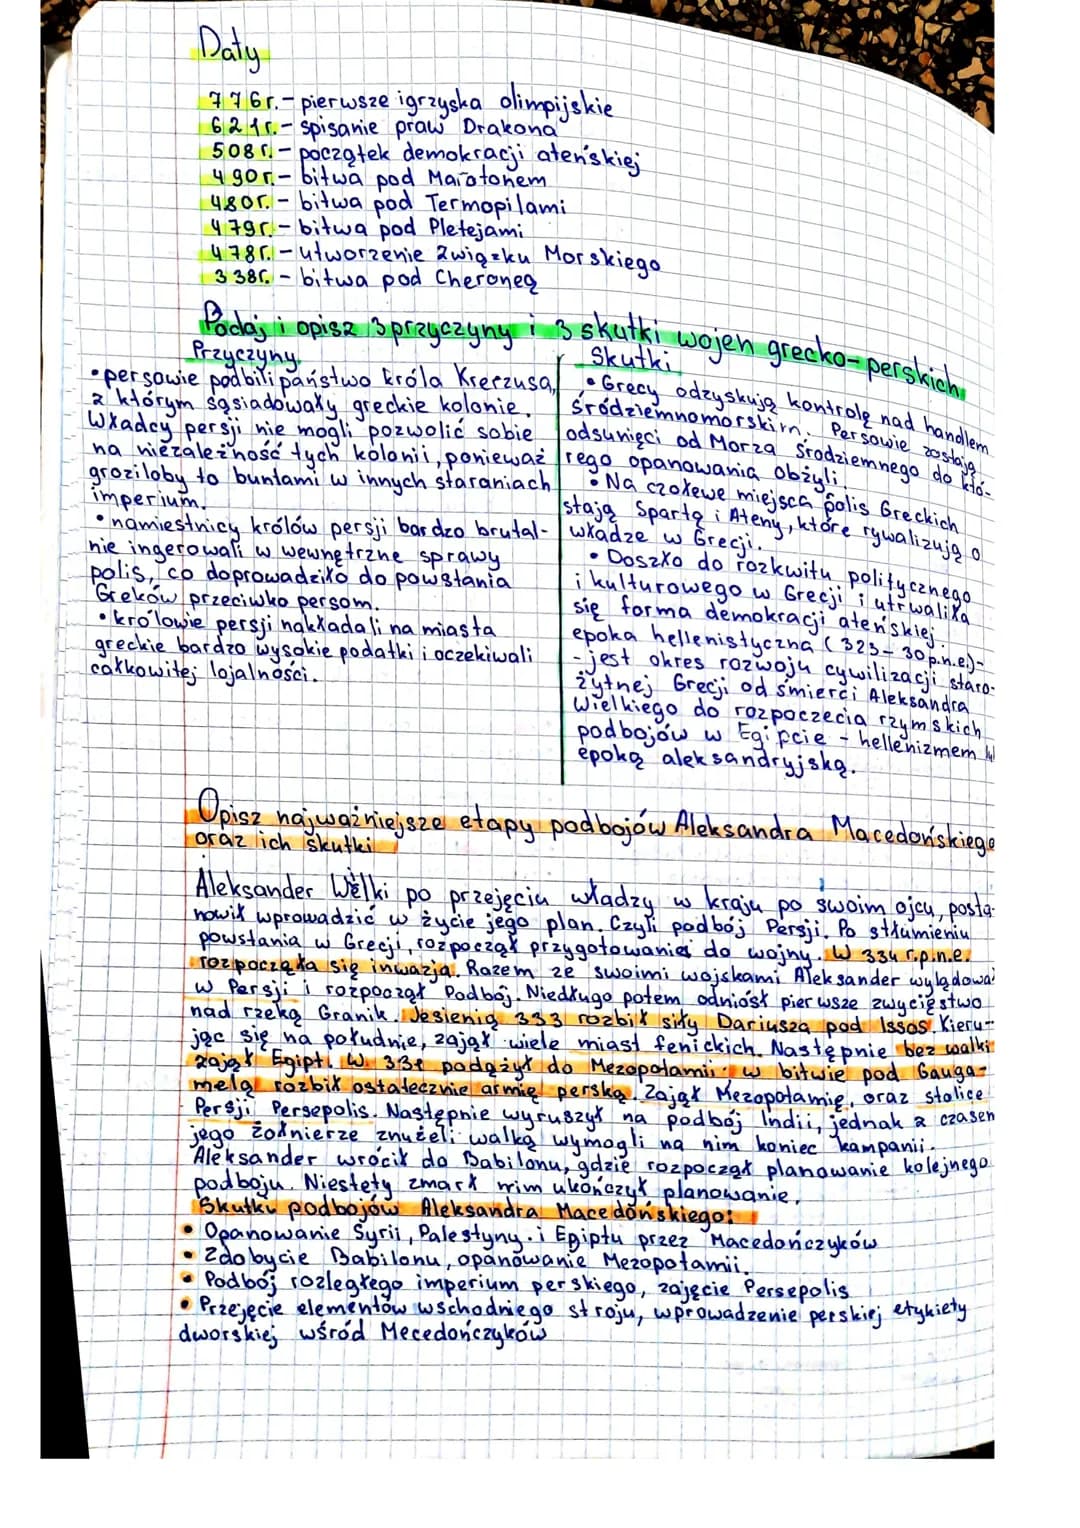 Daty
776r. - pierwsze igrzyska olimpijskie
621r. - spisanie praw Drakona
508r. - początek demokracji ateńskiej
490r. - bitwa pod Maratonem
480r. - bitwa pod Termopilami
479r. - bitwa pod Pletejami
478r. - utworzenie Związku Morskiego
338r. - bitwa pod Cheroneą
Podaj i opisz 3 przyczyny i 3 skutki wojen grecko-perskich
Przyczyny
• persowie podbili państwo króla Krezusa,
z którym sąsiadowały greckie kolonie.
Władcy persji nie mogli pozwolić sobie
na niezależność tych kolonii, ponieważ
groziłoby to buntami w innych staraniach
imperium.
• namiestnicy królów persji bardzo brutal-
nie ingerowali w wewnętrzne sprawy
polis, co doprowadziło do powstania
Greków przeciwko persom.
• królowie persji nakładali na miasta
greckie bardzo wysokie podatki i oczekiwali
całkowitej lojalności.
Skutki
• Grecy odzyskują kontrolę nad handlem
śródziemnomorskim. Persowie zostają
odsunięci od Morza Śródziemnego do któ-
rego opanowania obżyli.
• Na czołowe miejsca polis Greckich
stają Sparta i Ateny, które rywalizują o
władze w Grecji.
• Doszło do rozkwitu politycznego
i kulturowego w Grecji i utrwaliła
się forma demokracji ateńskiej.
epoka hellenistyczna (323-30p.n.e)-
- jest okres rozwoju cywilizacji staro-
żytnej Grecji od śmierci Aleksandra
Wielkiego do rozpoczecia rzymskich
podbojów w Egipcie - hellenizmem
epoką aleksandryjską.
Opisz najważniejsze etapy podbojów Aleksandra Macedońskiego
oraz ich skutki
Aleksander Wielki po przejęciu władzy w kraju po swoim ojcu, posta-
nowił wprowadzić w życie jego plan. Czyli podbój Persji. Po stłumieniu
powstania w Grecji, rozpoczął przygotowania do wojny. W 334 r.p.n.e.
rozpoczęła się inwazja. Razem ze swoimi wojskami Aleksander wylądował
w Persji i rozpoczął Podbój. Niedługo potem odniósł pierwsze zwycięstwo
nad rzeką Granik. Jesienią 333 rozbił siły Dariusza pod Issos. Kieru-
jąc się na południe, zajął wiele miast fenickich. Następnie bez walki
zajął Egipt. W 331 podążył do Mezopotamii w bitwie pod Gauga-
melą rozbił ostatecznie armię perską. Zajął Mezopotamię, oraz stolice
Persji Persepolis. Następnie wyruszył na podbój Indii, jednak z czasem
jego żołnierze znużeli walką wymogli na nim koniec kampanii.
Aleksander wrócił do Babilonu, gdzie rozpoczął planowanie kolejnego
podboju. Niestety zmarł nim ukończył planowanie.
Skutki podbojów Aleksandra Macedońskiego:
• Opanowanie Syrii, Palestyny i Egiptu przez Macedończyków
• Zdobycie Babilonu, opanowanie Mezopotamii.
• Podbój rozległego imperium perskiego, zajęcie Persepolis
• Przejęcie elementów wschodniego stroju, wprowadzenie perskiej etykiety
dworskiej wśród Mecedończyków